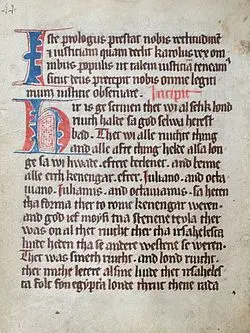 Iste prologus prestat nobis rectitudinē
⁊ iusticiam quam dedit karolus rex om
nibus populis ut talem iusticiā teneam⁹
sicut deus precepit nobis omne legitti
mum iusticie obseruare. Incipit
Hir is gescriuen thet wi alsek lond
riucht halde sa god selwa hereth
bad. Ther wi alle riucht thing
and alle afte thing helde alsa lon
ge sa wi liwade. efrere keelener. and keme
alle erth kenengar. efter. Juliano. and octa
uiano. Julianus. and octauianus. sa heren
tha forma ther to rome kenengar weren.
and god ief moysi tua stenene tevla ther
was on al ther riucht ther tha irsahelesca
liude heden tha se andere westene se weren.
Ther was sineth riucht. and lond riucht.
ther michte letere alsine liude ther irsahelesc
ta folc fon egypta londe thruch thene rada